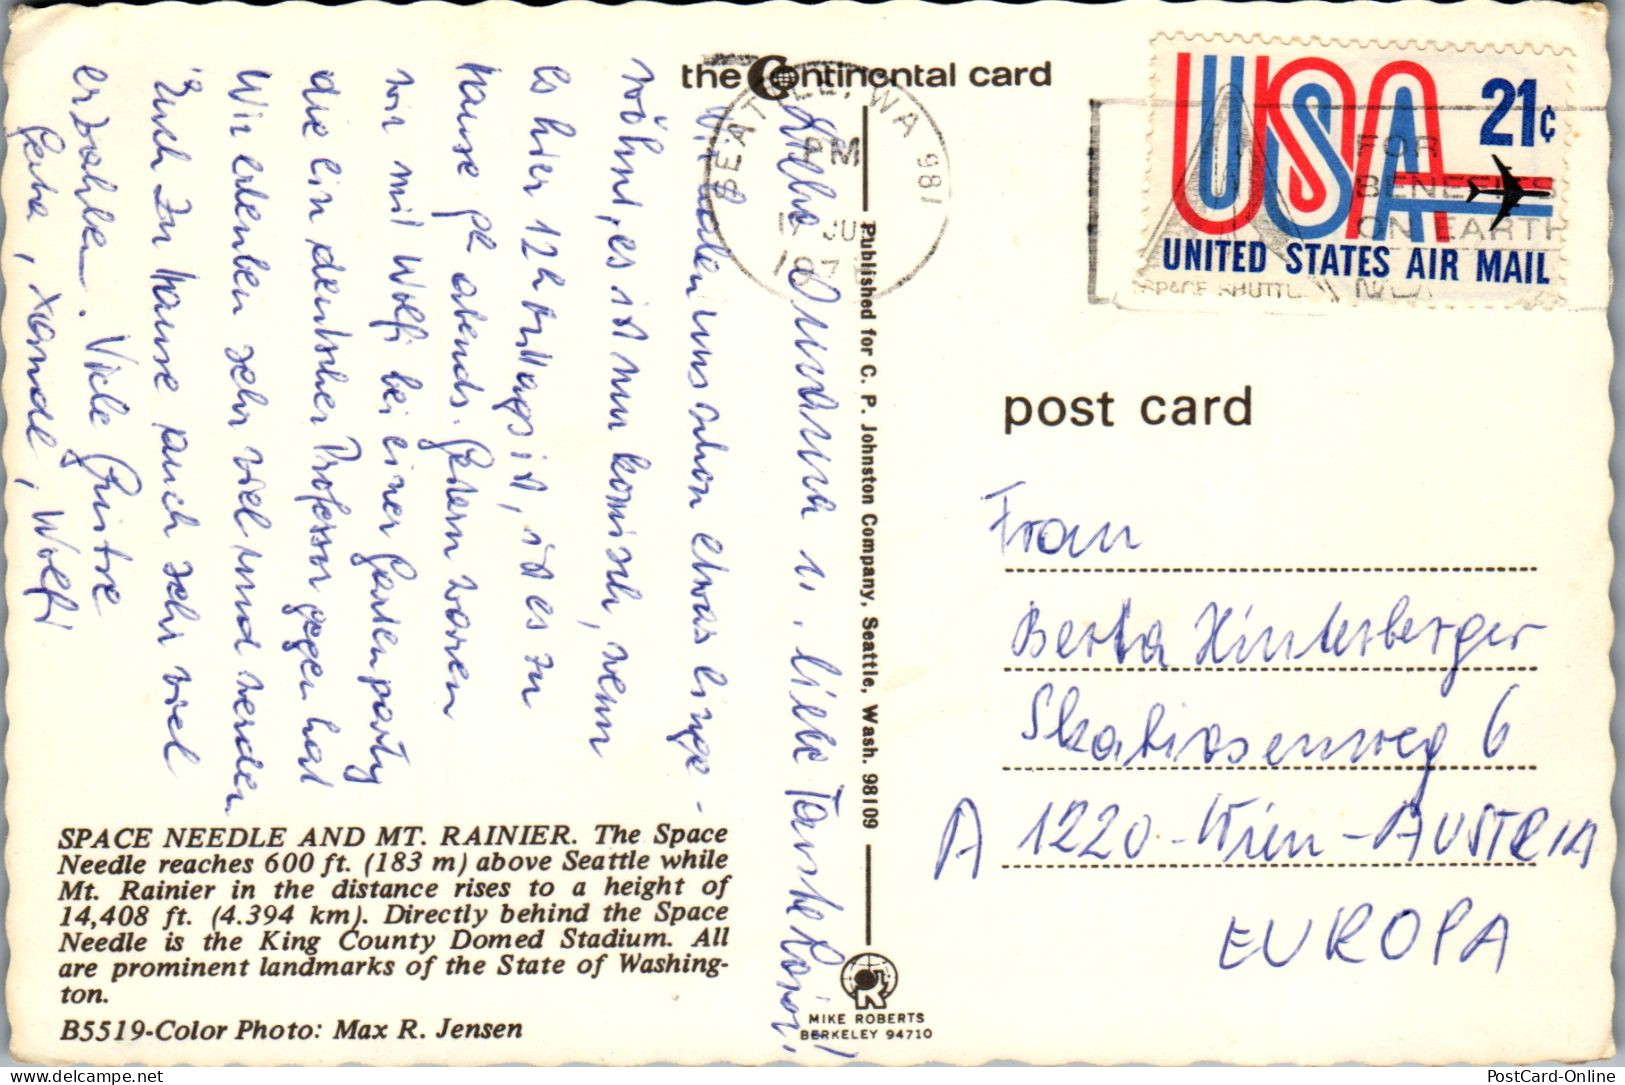 the Continental card
SEATTLE, WA 981
AM
JU
197
USA 21¢
UNITED STATES AIR MAIL
FOR
BENEFITS
ON EARTH
SPACE SHUTTLE
post card
Frau
Berta Hinterberger
6
A 1220-Wien-AUSTRIA
EUROPA
Liebe u. liebe Tante
Wir haben uns schon etwas einge-
wöhnt, es ist nur komisch, wenn
es hier 12h mittags ist, ist es zu
hause 9h abends. Gestern waren
wir mit Wolfi bei einer Gartenparty
die ein deutscher Professor gegeben hat
Wir erleben sehr viel und werden
Euch zu Hause auch sehr viel
erzählen. Viele Grüsse
Gerhe, Xandl, Wolfi
SPACE NEEDLE AND MT. RAINIER. The Space
Needle reaches 600 ft. (183 m) above Seattle while
Mt. Rainier in the distance rises to a height of
14,408 ft. (4.394 km). Directly behind the Space
Needle is the King County Domed Stadium. All
are prominent landmarks of the State of Washing-
ton.
B5519-Color Photo: Max R. Jensen
Published for C. P. Johnston Company, Seattle, Wash. 98109
MIKE ROBERTS
BERKELEY 94710
delcampe.net
PostCard-Online